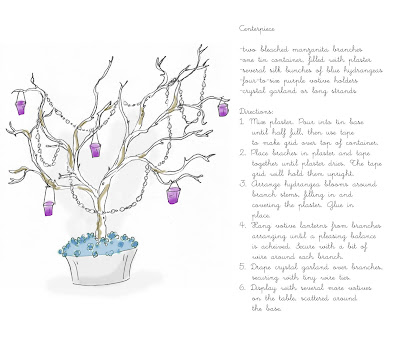 Centerpiece
-two bleached manzanita branches
-one tin container, filled with plaster
-several silk bunches of blue hydrangeas
-four-to-six purple votive holders
-crystal garland or long strands
Directions:
1. Mix plaster. Pour into tin base
until half full, then use tape
to make grid over top of container.
2. Place braches in plaster and tape
together until plaster dries. The tape
grid will hold them upright.
3. Arrange hydrangea blooms around
branch stems, filling in and
covering the plaster. Glue in
place.
4. Hang votive lanterns from branches
arranging until a pleasing balance
is achieved. Secure with a bit of
wire around each branch.
5. Drape crystal garland over branches,
securing with tiny wire ties.
6. Display with several more votives
on the table, scattered around
the base.